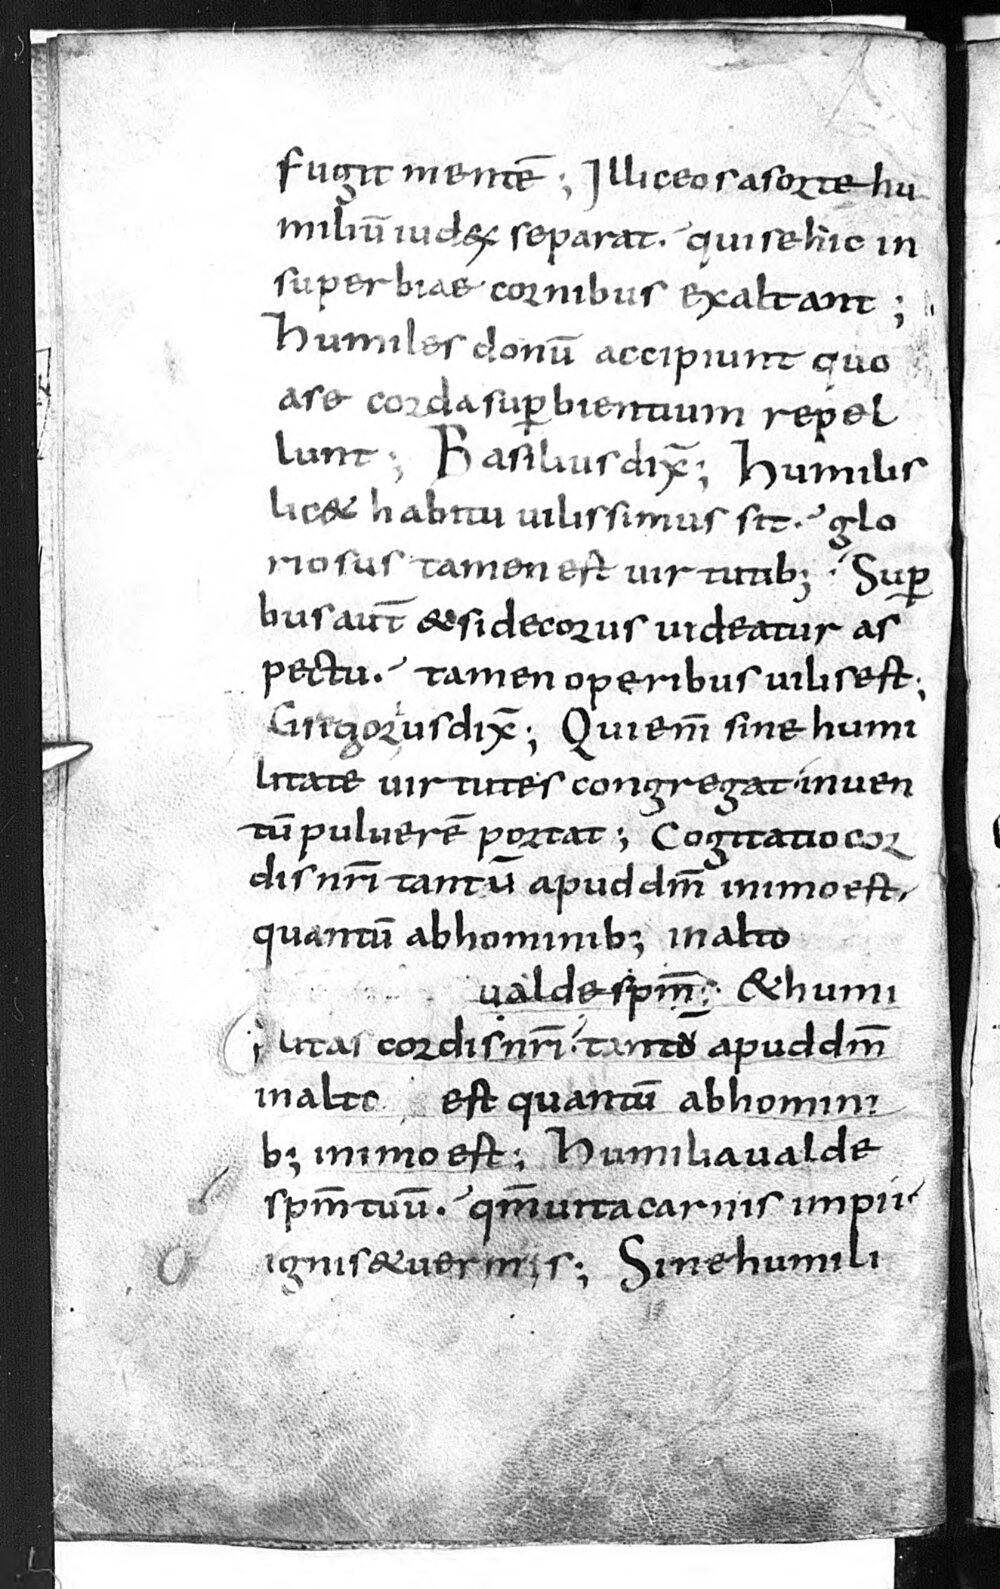 fugit mentē; Illic eos a sorte hu
miliū iudex separat. qui se hic in
superbiae cornibus exaltant;
Humiles donū accipiunt quo
a se corda suꝑbientium repel
lunt; Basilius dix̄; Humilis
lic& habitu uilissimus sit. glo
riosus tamen est uirtutib; Suꝑ
bus aut̄ & si decorus uideatur as
pectu. tamen operibus uilis est;
Grigorius dix̄; Qui em̄ sine humi
litate uirtutes congregat. in uen
tū puluerē portat; Cogitatio cor
dis nr̄i tantū apud dm̄ in imo est.
quantū ab hominib; in alto
ualde spm̄; & humi
litas cordis nr̄i. tanto apud dm̄
in alto est quantū ab homini
b; in imo est; Humilia ualde
spm̄ tuū. qm̄ uita carnis impii
ignis & uermis; Sine humili